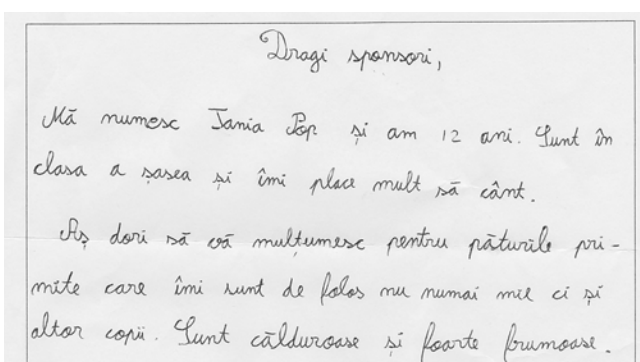 Dragi sponsori,
Mă numesc Tania Pop și am 12 ani. Sunt în
clasa a șasea și îmi place mult să cânt.
Aș dori să vă mulțumesc pentru păturile pri-
mite care îmi sunt de folos nu numai mie ci și
altor copii. Sunt călduroase și foarte frumoase.